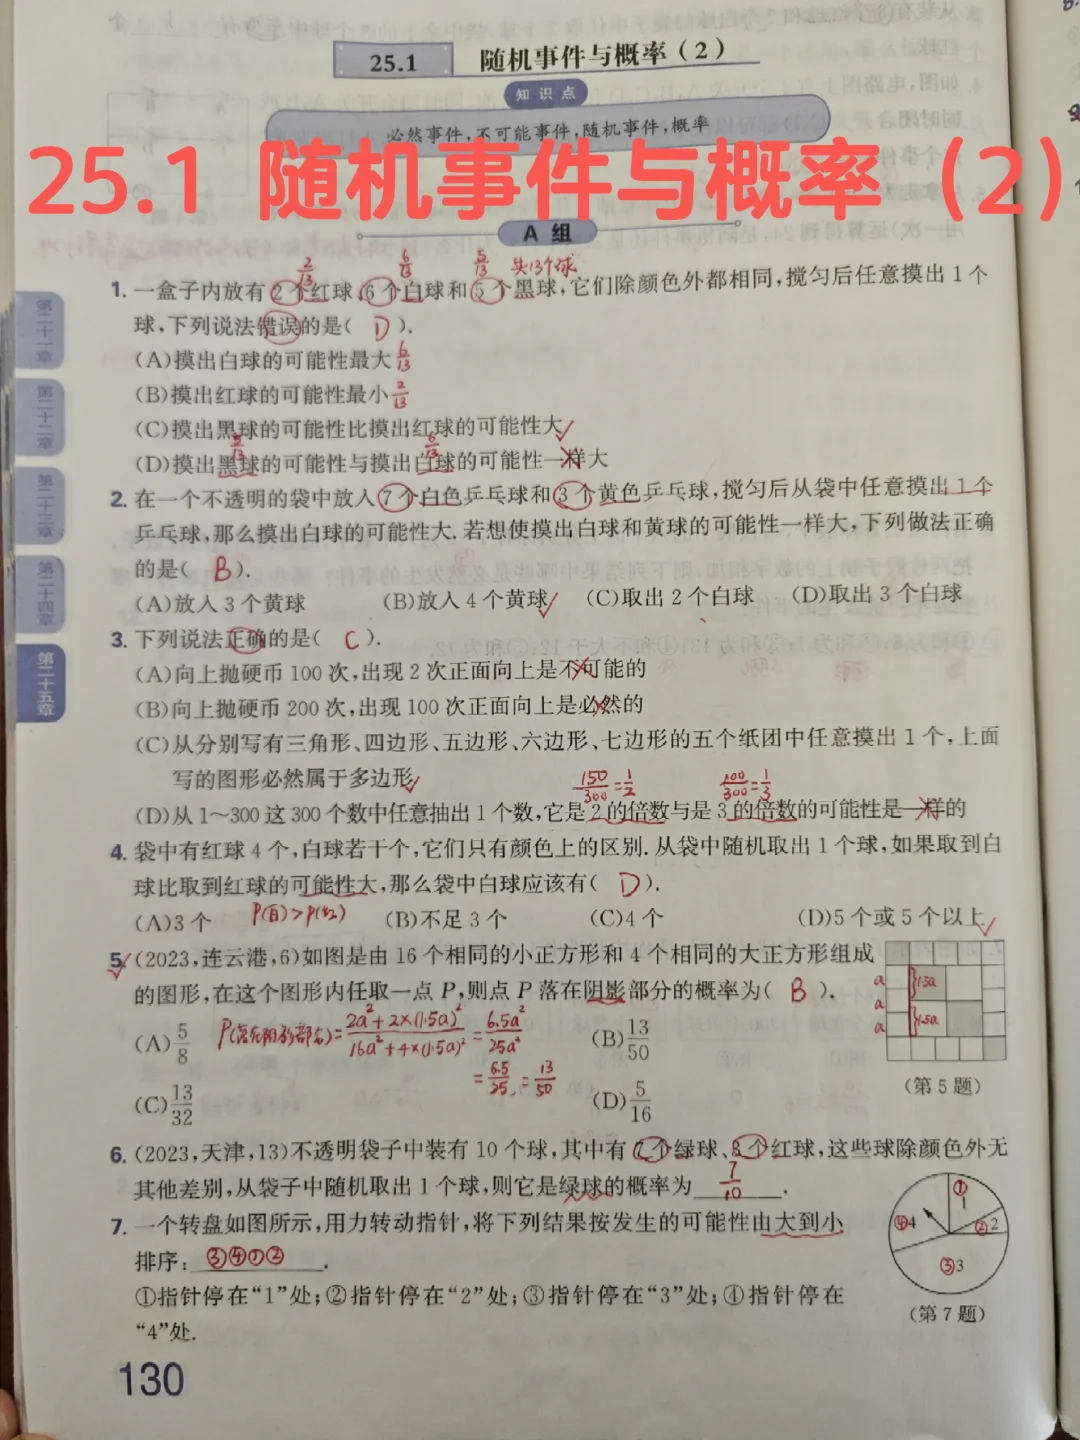 25.1 随机事件与概率(2)
知识点
必然事件,不可能事件,随机事件,概率
25.1 随机事件与概率(2)
A 组
2/13 6/13 5/13 共13个球
1. 一盒子内放有2个红球、6个白球和5个黑球,它们除颜色外都相同,搅匀后任意摸出1个
球,下列说法错误的是( D ).
(A)摸出白球的可能性最大 6/13
(B)摸出红球的可能性最小 2/13
(C)摸出黑球的可能性比摸出红球的可能性大✓
5/13 6/13
(D)摸出黑球的可能性与摸出白球的可能性一样大
2. 在一个不透明的袋中放入7个白色乒乓球和3个黄色乒乓球,搅匀后从袋中任意摸出1个
乒乓球,那么摸出白球的可能性大.若想使摸出白球和黄球的可能性一样大,下列做法正确
的是( B ).
(A)放入3个黄球 (B)放入4个黄球✓ (C)取出2个白球 (D)取出3个白球
3. 下列说法正确的是( C ).
(A)向上抛硬币100次,出现2次正面向上是不可能的
(B)向上抛硬币200次,出现100次正面向上是必然的
(C)从分别写有三角形、四边形、五边形、六边形、七边形的五个纸团中任意摸出1个,上面
写的图形必然属于多边形✓
150/300=1/2 100/300=1/3
(D)从1~300这300个数中任意抽出1个数,它是2的倍数与是3的倍数的可能性是一样的
4. 袋中有红球4个,白球若干个,它们只有颜色上的区别.从袋中随机取出1个球,如果取到白
球比取到红球的可能性大,那么袋中白球应该有( D ).
(A)3个 P(白)>P(红) (B)不足3个 (C)4个 (D)5个或5个以上✓
5. (2023,连云港,6)如图是由16个相同的小正方形和4个相同的大正方形组成
的图形,在这个图形内任取一点P,则点P落在阴影部分的概率为( B ).
a a a 1.5a 1.5a
(A)5/8 P(落在阴影部分)=2a²+2×(1.5a)²/16a²+4×(1.5a)²=6.5a²/25a² (B)13/50
=6.5/25=13/50
(第5题)
(C)13/32 (D)5/16
6. (2023,天津,13)不透明袋子中装有10个球,其中有7个绿球、3个红球,这些球除颜色外无
其他差别,从袋子中随机取出1个球,则它是绿球的概率为 7/10 .
7. 一个转盘如图所示,用力转动指针,将下列结果按发生的可能性由大到小
排序: ③④①② .
①指针停在“1”处;②指针停在“2”处;③指针停在“3”处;④指针停在
“4”处.
① 1
④4 ②2
③3
(第7题)
第二十一章
第二十二章
第二十三章
第二十四章
第二十五章
130